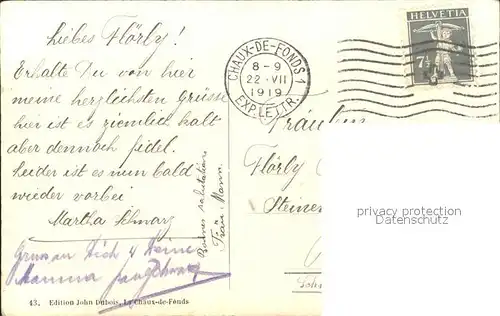 Liebes Flörly!
Erhalte Du von hier
meine herzlichsten Grüsse
hier ist es ziemlich kalt
aber dennoch fidel.
Leider ist es nun bald
wieder vorbei
Martha Schwarz
Gruss an Dich & Deine
Mamma
Bonnes salutations
Frau Mann.
43. Edition John Dubois, La Chaux-de-Fonds
CHAUX-DE-FONDS 1
8-9
22·VII
1919
EXP. LETTR.
HELVETIA
7½
Fräulein
Flörly
Steinen
privacy protection
www.ansichtskartenversand.com